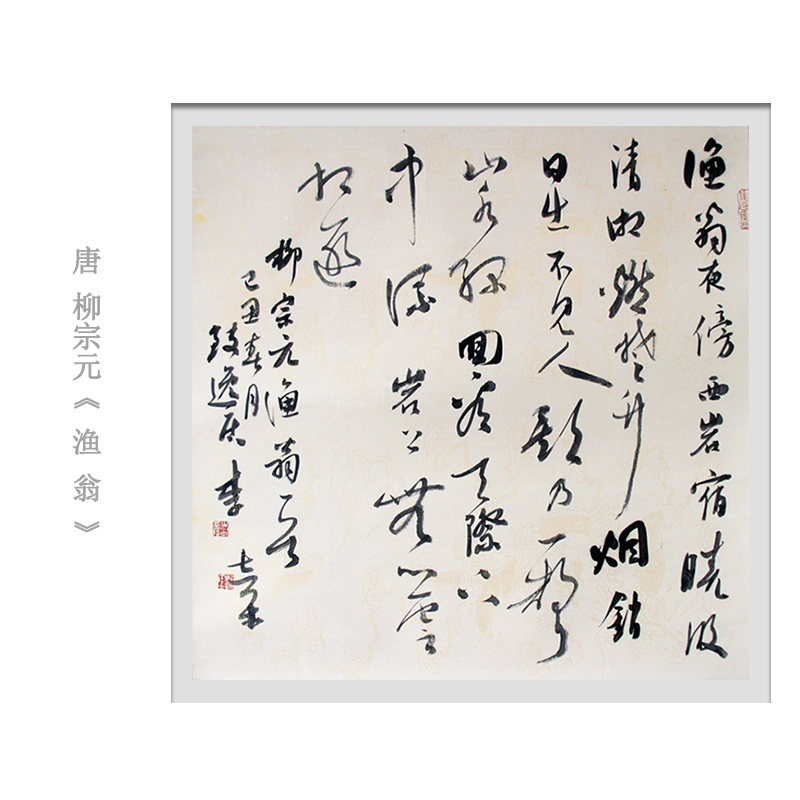 唐 柳宗元《渔翁》
渔翁夜傍西岩宿曉汲
清湘燃楚竹烟銷
日出不見人欸乃一聲
山水緑回看天際下
中流岩上無心雲
相逐
柳宗元渔翁一首
己丑春月
逸居 李